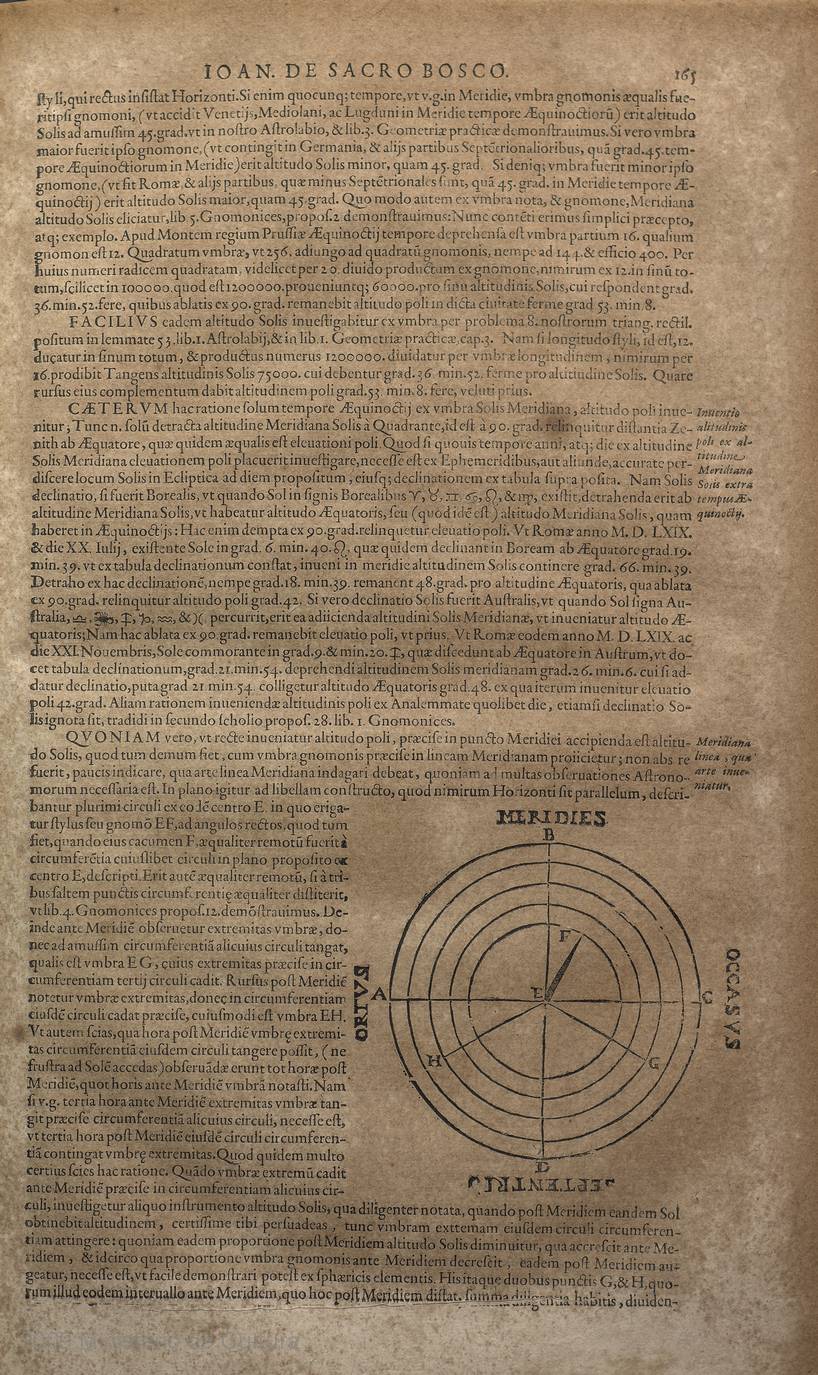 IOAN. DE SACRO BOSCO. 165
ſtyli, qui rectus inſiſtat Horizonti. Si enim quocunq; tempore, vt v. g. in Meridie, vmbra gnomonis æqualis fue-
rit ipſi gnomoni, (vt accidit Venetijs, Mediolani, ac Lugduni in Meridie tempore Æquinoctiorū) erit altitudo
Solis ad amuſſim 45. grad. vt in noſtro Aſtrolabio, & lib. 3. Geometriæ practicæ demonſtrauimus. Si vero vmbra
maior fuerit ipſo gnomone, (vt contingit in Germania, & alijs partibus Septētrionalioribus, quā grad. 45. tem-
pore Æquinoctiorum in Meridie) erit altitudo Solis minor, quam 45. grad. Si deniq; vmbra fuerit minor ipſo
gnomone, (vt fit Romæ, & alijs partibus, quæ minus Septētrionales ſunt, quā 45. grad. in Meridie tempore Æ-
quinoctij) erit altitudo Solis maior, quam 45. grad. Quo modo autem ex vmbra nota, & gnomone, Meridiana
altitudo Solis eliciatur, lib. 5. Gnomonices, propoſ. 2 demonſtrauimus: Nunc contēti erimus ſimplici præcepto,
atq; exemplo. Apud Montem regium Pruſſiæ Æquinoctij tempore deprehenſa eſt vmbra partium 16. qualium
gnomon eſt 12. Quadratum vmbræ, vt 256. adiungo ad quadratū gnomonis, nempe ad 144. & efficio 400. Per
huius numeri radicem quadratam, videlicet per 20. diuido productum ex gnomone, nimirum ex 12. in ſinū to-
tum, ſcilicet in 100000. quod eſt 1200000. proueniuntq; 60000. pro ſinu altitudinis Solis, cui reſpondent grad.
36. min. 52. fere, quibus ablatis ex 90. grad. remanebit altitudo poli in dicta ciuitate ferme grad 53. min. 8.
FACILIVS eadem altitudo Solis inueſtigabitur ex vmbra per problema 8. noſtrorum triang. rectil.
poſitum in lemmate 53. lib. 1. Aſtrolabij, & in lib. 1. Geometriæ practicæ, cap. 3. Nam ſi longitudo ſtyli, id eſt, 12.
ducatur in ſinum totum, & productus numerus 1200000. diuidatur per vmbræ longitudinem, nimirum per
16. prodibit Tangens altitudinis Solis 75000. cui debentur grad. 36. min. 52. ferme pro altitudine Solis. Quare
rurſus eius complementum dabit altitudinem poli grad. 53. min. 8. fere, veluti prius.
CÆTERVM hac ratione ſolum tempore Æquinoctij ex vmbra Solis Meridiana, altitudo poli inue-
nitur; Tunc n. ſolū detracta altitudine Meridiana Solis à Quadrante, id eſt à 90. grad. relinquitur diſtantia Ze-
nith ab Æquatore, quæ quidem æqualis eſt eleuationi poli. Quod ſi quouis tempore anni, atq; die ex altitudine
Solis Meridiana eleuationem poli placuerit inueſtigare, neceſſe eſt ex Ephemeridibus, aut aliunde, accurate per-
diſcere locum Solis in Ecliptica ad diem propoſitum, eiuſq; declinationem ex tabula ſupra poſita. Nam Solis
declinatio, ſi fuerit Borealis, vt quando Sol in ſignis Borealibus ♈, ♉, ♊, ♋, ♌, & ♍, exiſtit, detrahenda erit ab
altitudine Meridiana Solis, vt habeatur altitudo Æquatoris, ſeu (quod idē eſt) altitudo Meridiana Solis, quam
haberet in Æquinoctijs: Hac enim dempta ex 90. grad. relinquetur eleuatio poli. Vt Romæ anno M. D. LXIX.
& die XX. Iulij, exiſtente Sole in grad. 6. min. 40. ♌, quæ quidem declinant in Boream ab Æquatore grad. 19.
min. 39. vt ex tabula declinationum conſtat, inueni in meridie altitudinem Solis continere grad. 66. min. 39.
Detraho ex hac declinationē, nempe grad. 18. min. 39. remanent 48. grad. pro altitudine Æquatoris, qua ablata
ex 90. grad. relinquitur altitudo poli grad. 42. Si vero declinatio Solis fuerit Auſtralis, vt quando Sol ſigna Au-
ſtralia, ♎, ♏, ♐, ♑, ♒, & ♓, percurrit, erit ea adiicienda altitudini Solis Meridianæ, vt inueniatur altitudo Æ-
quatoris; Nam hac ablata ex 90. grad. remanebit eleuatio poli, vt prius. Vt Romæ eodem anno M. D. LXIX. ac
die XXI. Nouembris, Sole commorante in grad. 9. & min. 20. ♐, quæ diſcedunt ab Æquatore in Auſtrum, vt do-
cet tabula declinationum, grad. 21. min. 54. deprehendi altitudinem Solis meridianam grad. 26. min. 6. cui ſi ad-
datur declinatio, puta grad 21 min. 54. colligetur altitudo Æquatoris grad. 48. ex qua iterum inuenitur eleuatio
poli 42. grad. Aliam rationem inueniendæ altitudinis poli ex Analemmate quolibet die, etiamſi declinatio So-
lis ignota ſit, tradidi in ſecundo ſcholio propoſ. 28. lib. 1. Gnomonices.
Inuentio
altitudinis
poli ex al-
titudine
Meridiana
Solis extra
tempus Æ-
quinoctij.
QVONIAM vero, vt recte inueniatur altitudo poli, præciſe in puncto Meridiei accipienda eſt altitu-
do Solis, quod tum demum fiet, cum vmbra gnomonis præciſe in lineam Meridianam proiicietur; non abs re
fuerit, paucis indicare, qua arte linea Meridiana indagari debeat, quoniam ad multas obſeruationes Aſtrono-
morum neceſſaria eſt. In plano igitur ad libellam conſtructo, quod nimirum Horizonti ſit parallelum, deſcri-
Meridiana
linea, qua
arte inue-
niatur.
bantur plurimi circuli ex eodē centro E. in quo eriga-
tur ſtylus ſeu gnomō EF, ad angulos rectos, quod tum
fiet, quando eius cacumen F, æqualiter remotū fuerit à
circumferētia cuiuſlibet circuli in plano propoſito ex
centro E, deſcripti. Erit autē æqualiter remotū, ſi à tri-
bus ſaltem punctis circumferentię æqualiter diſtiterit,
vt lib. 4. Gnomonices propoſ. 12. demōſtrauimus. De-
inde ante Meridiē obſeruetur extremitas vmbræ, do-
nec ad amuſſim circumferentiā alicuius circuli tangat,
qualis eſt vmbra EG, cuius extremitas præciſe in cir-
cumferentiam tertij circuli cadit. Rurſus poſt Meridiē
notetur vmbræ extremitas, donec in circumferentiam
eiuſdē circuli cadat præciſe, cuiuſmodi eſt vmbra EH.
Vt autem ſcias, qua hora poſt Meridiē vmbrę extremi-
tas circumferentiā eiuſdem circuli tangere poſſit, (ne
fruſtra ad Solē accedas) obſeruādæ erunt tot horæ poſt
Meridiē, quot horis ante Meridiē vmbrā notaſti. Nam
ſi v. g. tertia hora ante Meridiē extremitas vmbræ tan-
git præciſe circumferentiā alicuius circuli, neceſſe eſt,
vt tertia hora poſt Meridiē eiuſdē circuli circumferen-
tiā contingat vmbrę extremitas. Quod quidem multo
certius ſcies hac ratione. Quādo vmbræ extremū cadit
ante Meridiē præciſe in circumferentiam alicuius cir-
MERIDIES
B
F
A
E
C
H
G
D
ORTVS
OCCASVS
SEPTENTRIO
culi, inueſtigetur aliquo inſtrumento altitudo Solis, qua diligenter notata, quando poſt Meridiem eandem Sol
obtinebit altitudinem, certiſſime tibi perſuadeas, tunc vmbram extremam eiuſdem circuli circumferen-
tiam attingere: quoniam eadem proportione poſt Meridiem altitudo Solis diminuitur, qua accreſcit ante Me-
ridiem, & idcirco qua proportione vmbra gnomonis ante Meridiem decreſcit, eadem poſt Meridiem au-
geatur, neceſſe eſt, vt facile demonſtrari poteſt ex ſphæricis elementis. His itaque duobus punctis G, & H, quo-
rum illud eodem interuallo ante Meridiem, quo hoc poſt Meridiem diſtat, ſumma diligentia habitis, diuiden-